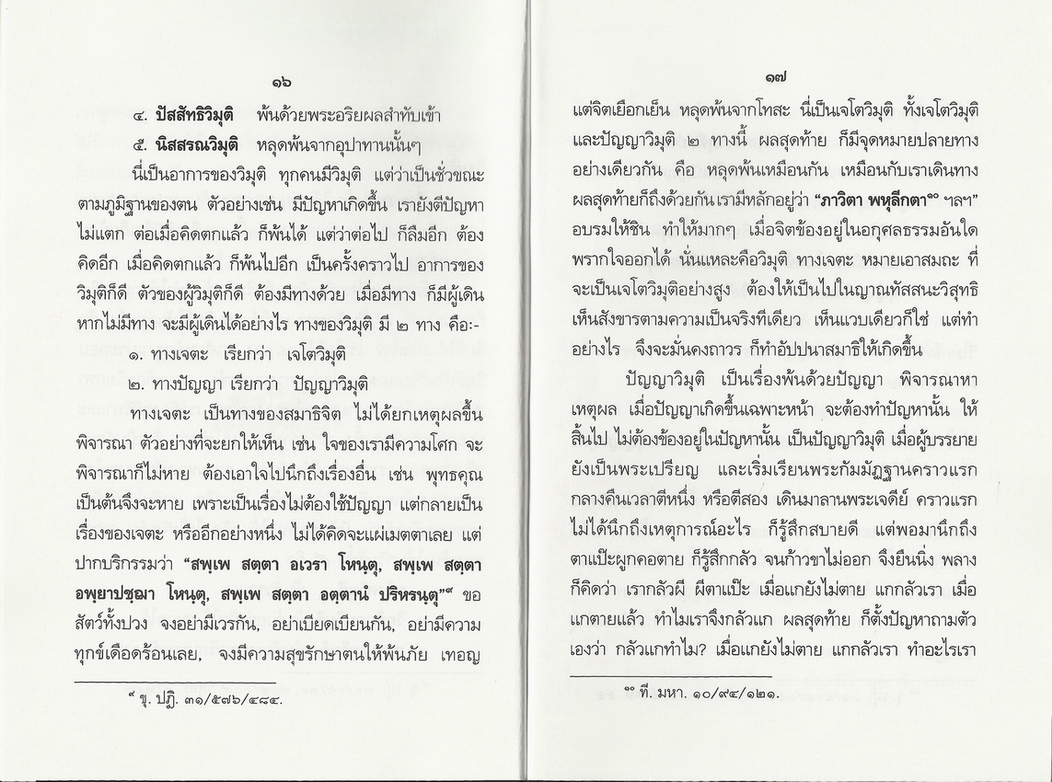 ๑๖
๔. ปัสสัทธิวิมุติ พ้นด้วยพระอริยผลสำทับเข้า
๕. นิสสรณวิมุติ หลุดพ้นจากอุปาทานนั้นๆ
นี่เป็นอาการของวิมุติ ทุกคนมีวิมุติ แต่ว่าเป็นชั่วขณะ
ตามภูมิฐานของตน ตัวอย่างเช่น มีปัญหาเกิดขึ้น เรายังตีปัญหา
ไม่แตก ต่อเมื่อคิดตกแล้ว ก็พ้นได้ แต่ว่าต่อไป ก็ลืมอีก ต้อง
คิดอีก เมื่อคิดตกแล้ว ก็พ้นไปอีก เป็นครั้งคราวไป อาการของ
วิมุติก็ดี ตัวของผู้วิมุติก็ดี ต้องมีทางด้วย เมื่อมีทาง ก็มีผู้เดิน
หากไม่มีทาง จะมีผู้เดินได้อย่างไร ทางของวิมุติ มี ๒ ทาง คือ:-
๑. ทางเจตะ เรียกว่า เจโตวิมุติ
๒. ทางปัญญา เรียกว่า ปัญญาวิมุติ
ทางเจตะ เป็นทางของสมาธิจิต ไม่ได้ยกเหตุผลขึ้น
พิจารณา ตัวอย่างที่จะยกให้เห็น เช่น ใจของเรามีความโศก จะ
พิจารณาก็ไม่หาย ต้องเอาใจไปนึกถึงเรื่องอื่น เช่น พุทธคุณ
เป็นต้นจึงจะหาย เพราะเป็นเรื่องไม่ต้องใช้ปัญญา แต่กลายเป็น
เรื่องของเจตะ หรืออีกอย่างหนึ่ง ไม่ได้คิดจะแผ่เมตตาเลย แต่
ปากบริกรรมว่า “สพฺเพ สตฺตา อเวรา โหนฺตุ, สพฺเพ สตฺตา
อพฺยาปชฺฌา โหนฺตุ, สพฺเพ สตฺตา อตฺตานํ ปริหรนฺตุ”๙ ขอ
สัตว์ทั้งปวง จงอย่ามีเวรกัน, อย่าเบียดเบียนกัน, อย่ามีความ
ทุกข์เดือดร้อนเลย, จงมีความสุขรักษาตนให้พ้นภัย เทอญ
๙ ขุ. ปฏิ. ๓๑/๕๗๖/๔๘๔.
๑๗
แต่จิตเยือกเย็น หลุดพ้นจากโทสะ นี่เป็นเจโตวิมุติ ทั้งเจโตวิมุติ
และปัญญาวิมุติ ๒ ทางนี้ ผลสุดท้าย ก็มีจุดหมายปลายทาง
อย่างเดียวกัน คือ หลุดพ้นเหมือนกัน เหมือนกับเราเดินทาง
ผลสุดท้ายก็ถึงด้วยกัน เรามีหลักอยู่ว่า “ภาวิตา พหุลีกตา๑๐ ฯลฯ”
อบรมให้ชิน ทำให้มากๆ เมื่อจิตข้องอยู่ในอกุศลธรรมอันใด
พรากใจออกได้ นั่นแหละคือวิมุติ ทางเจตะ หมายเอาสมถะ ที่
จะเป็นเจโตวิมุติอย่างสูง ต้องให้เป็นไปในญาณทัสสนะวิสุทธิ
เห็นสังขารตามความเป็นจริงทีเดียว เห็นแวบเดียวก็ใช่ แต่ทำ
อย่างไร จึงจะมั่นคงถาวร ก็ทำอัปปนาสมาธิให้เกิดขึ้น
ปัญญาวิมุติ เป็นเรื่องพ้นด้วยปัญญา พิจารณาหา
เหตุผล เมื่อปัญญาเกิดขึ้นเฉพาะหน้า จะต้องทำปัญหานั้น ให้
สิ้นไป ไม่ต้องข้องอยู่ในปัญหานั้น เป็นปัญญาวิมุติ เมื่อผู้บรรยาย
ยังเป็นพระเปรียญ และเริ่มเรียนพระกัมมัฏฐานคราวแรก
กลางคืนเวลาตีหนึ่ง หรือตีสอง เดินมาลานพระเจดีย์ คราวแรก
ไม่ได้นึกถึงเหตุการณ์อะไร ก็รู้สึกสบายดี แต่พอมานึกถึง
ตาแป๊ะผูกคอตาย ก็รู้สึกกลัว จนก้าวขาไม่ออก จึงยืนนิ่ง พลาง
ก็คิดว่า เรากลัวผี ผีตาแป๊ะ เมื่อแกยังไม่ตาย แกกลัวเรา เมื่อ
แกตายแล้ว ทำไมเราจึงกลัวแก ผลสุดท้าย ก็ตั้งปัญหาถามตัว
เองว่า กลัวแกทำไม? เมื่อแกยังไม่ตาย แกกลัวเรา ทำอะไรเรา
๑๐ ที. มหา. ๑๐/๙๔/๑๒๑.